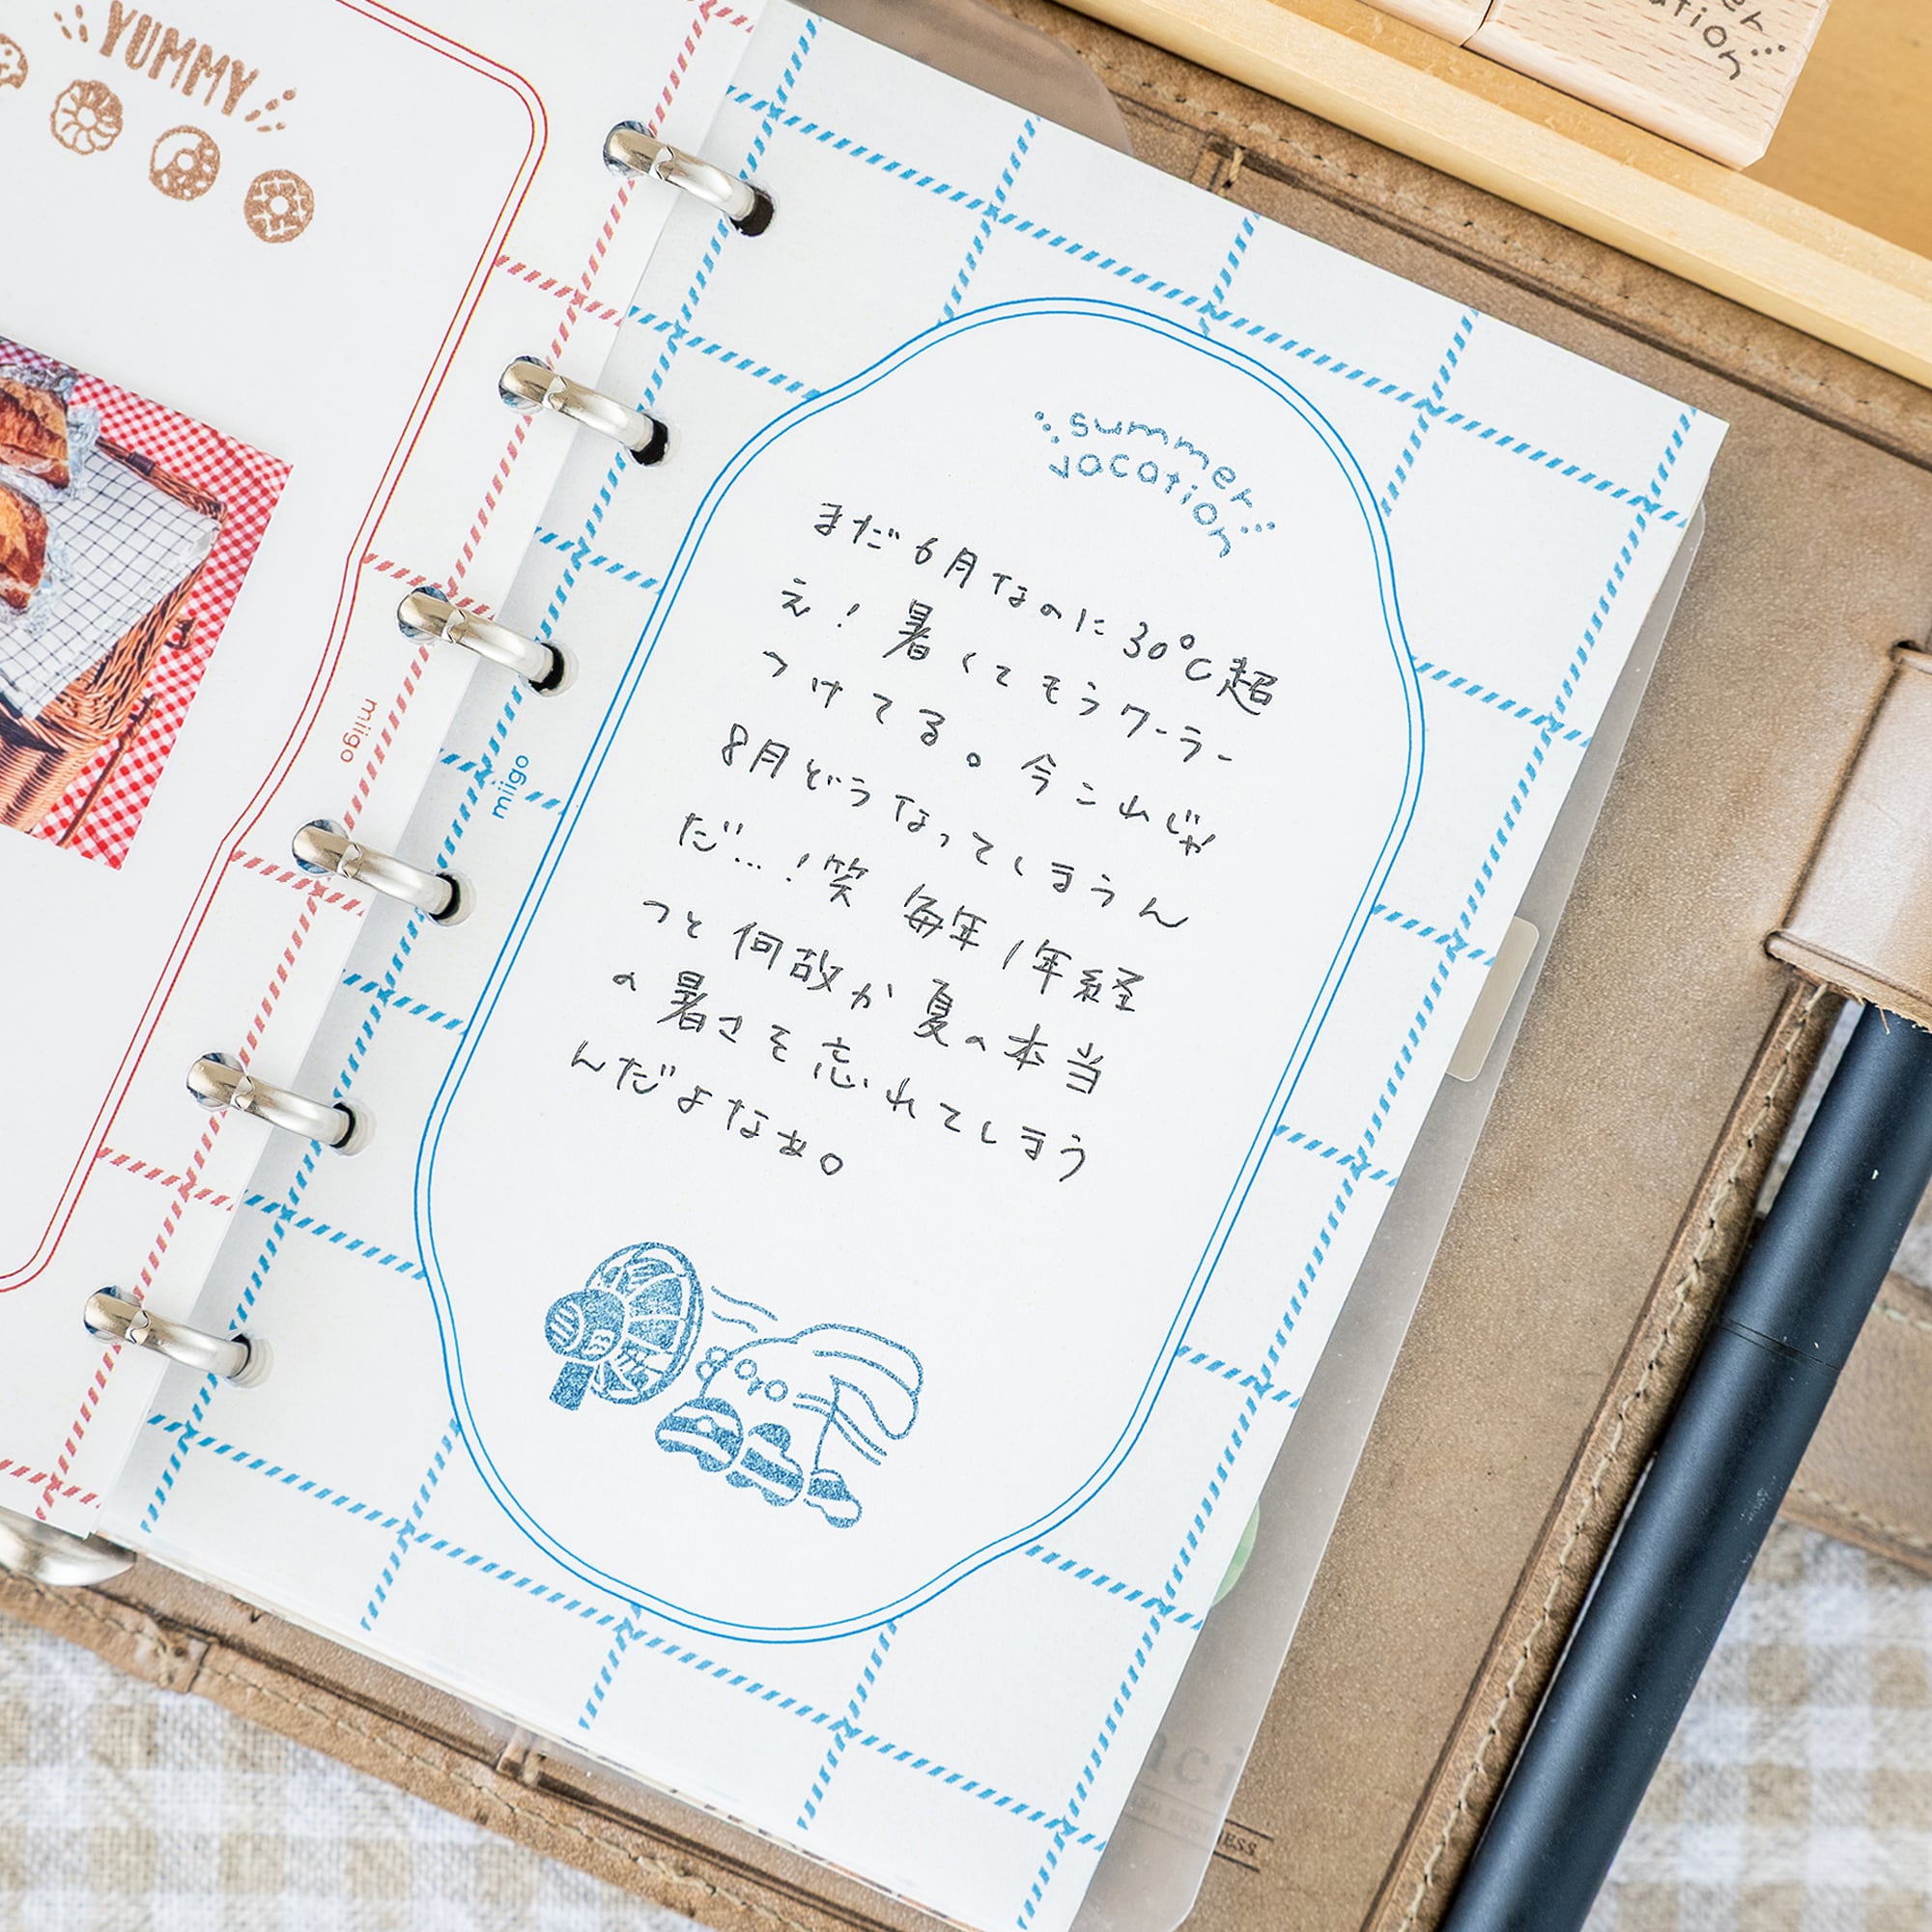 YUMMY
miigo
miigo
summer
vacation
まだ6月なのに30℃超
え！暑くてもうクーラー
つけてる。今これじゃ
8月どうなってしまうん
だ…！笑 毎年1年経
つと何故か夏の本当
の暑さを忘れてしまう
んだよなぁ。
vacation